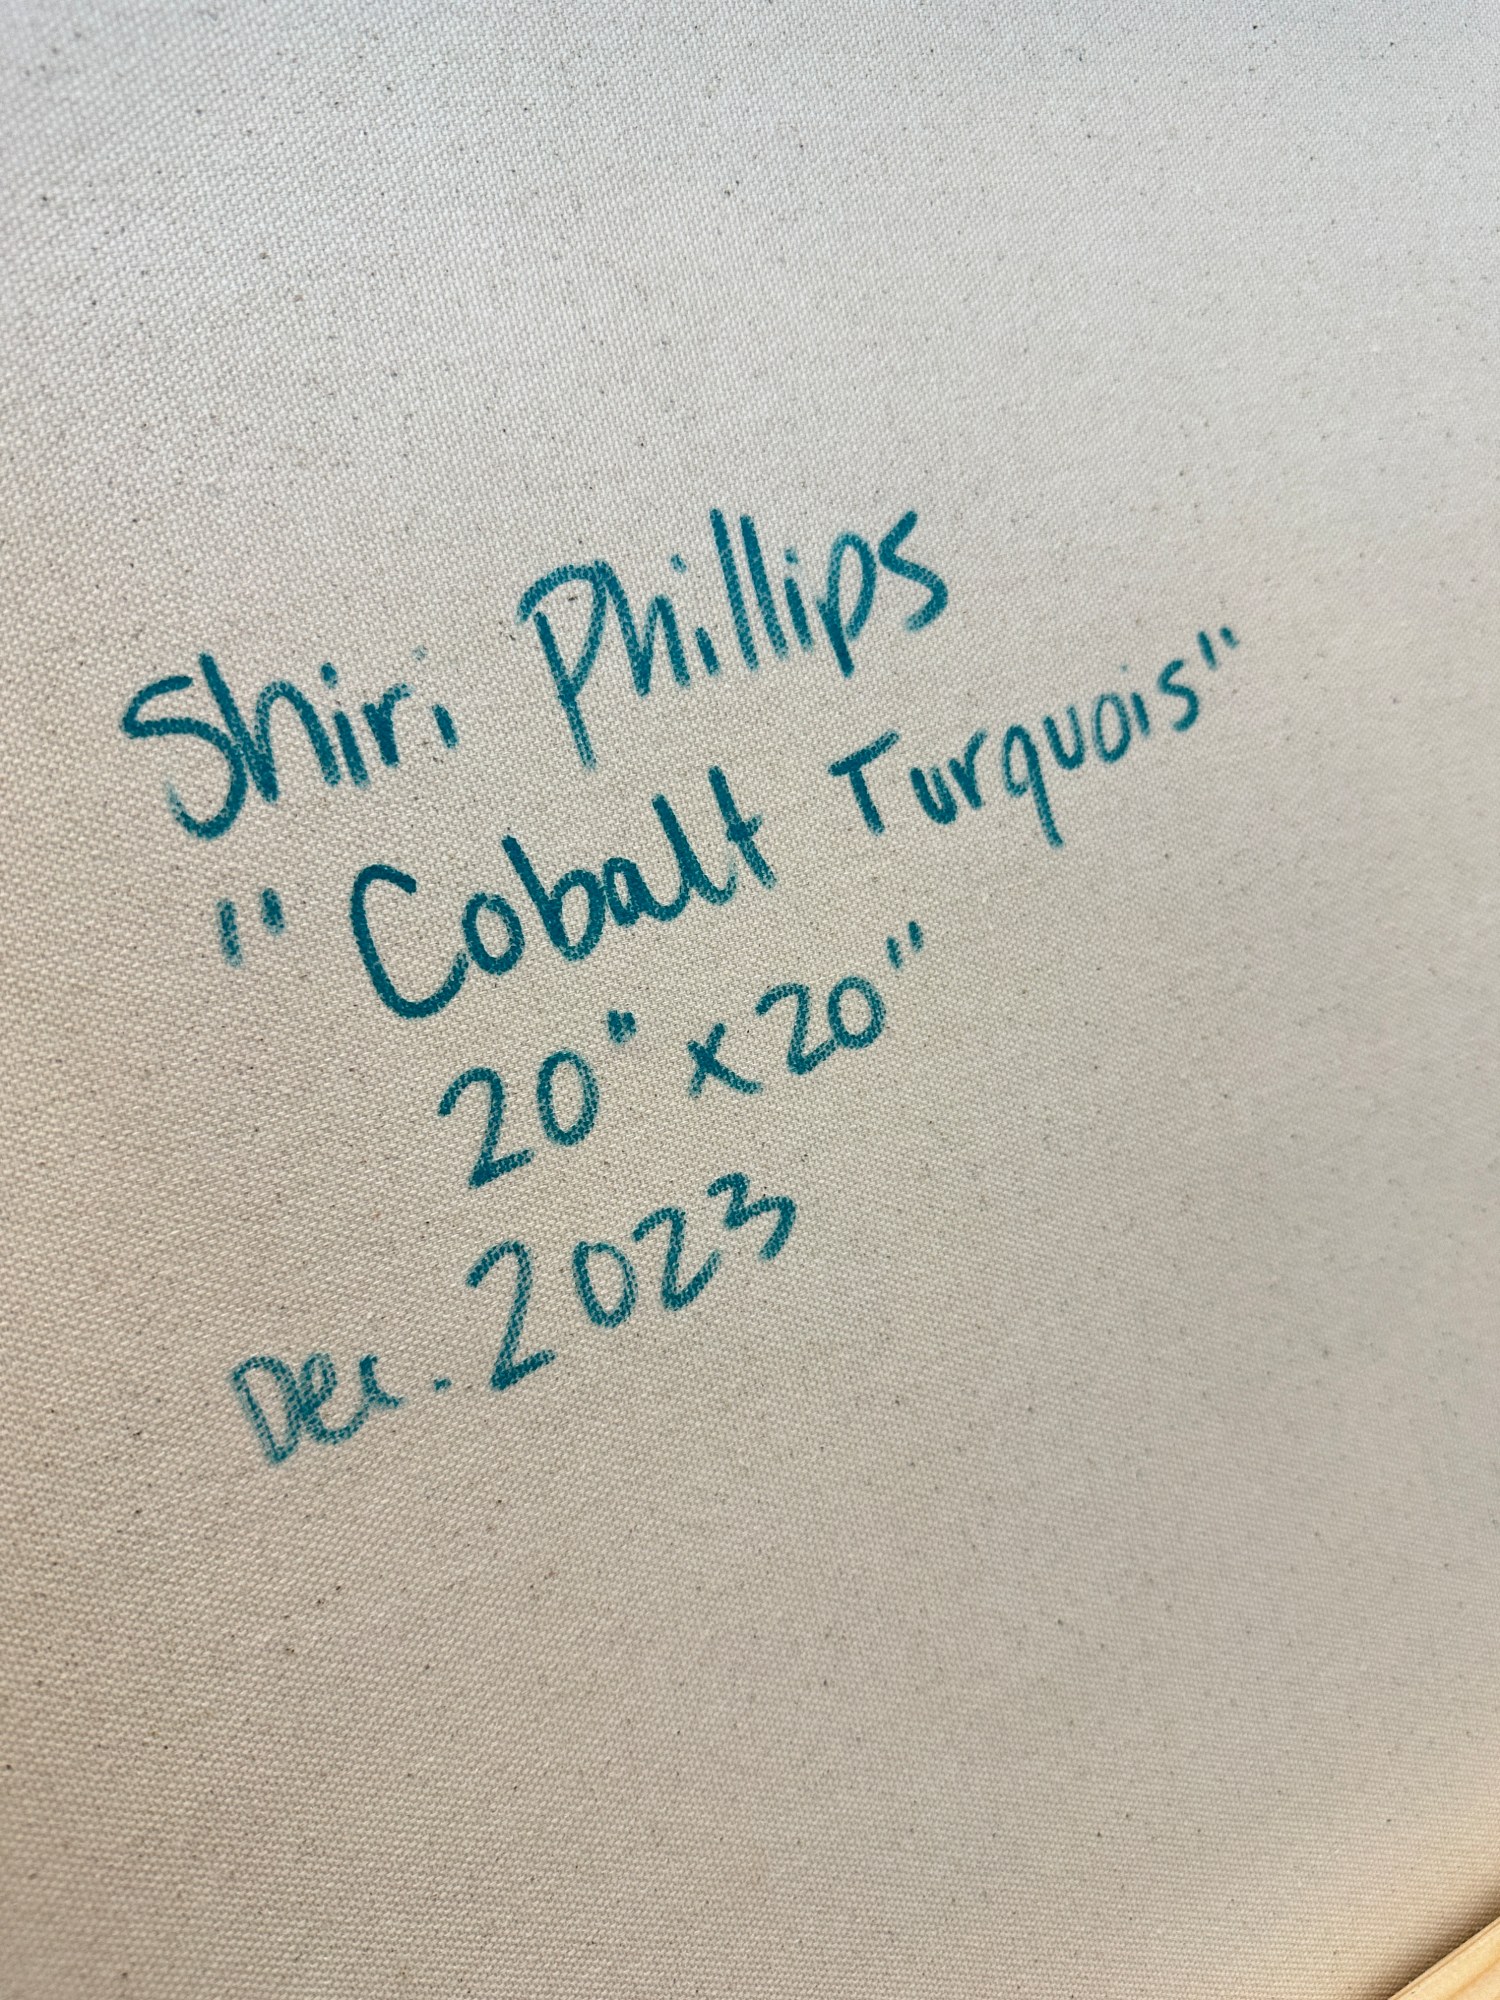 Shiri Phillips
"Cobalt Turquois"
20" x 20"
Dec. 2023